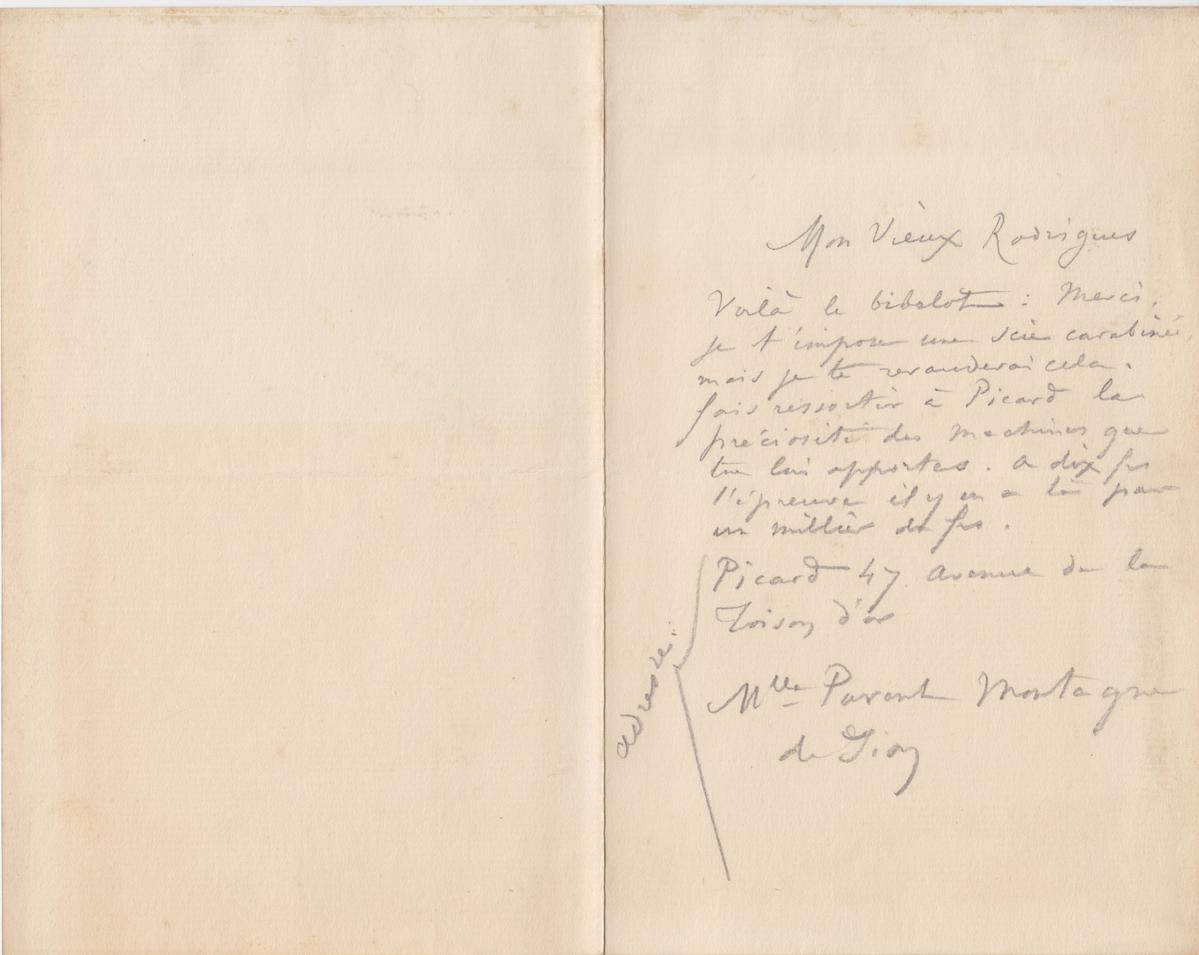 Mon Vieux Rodrigues
Voilà le bibelot : Merci,
je t'impose une scie carabinée,
mais je te revauderai cela.
fais ressortir à Picard la
préciosité des machines que
tu lui apportes. a dix frs
l'épreuve il y en a là pour
un millier de frs.
Picard 47. Avenue de la
Toison d'or
Mlle Parent Montagne
de Sion
adresse: